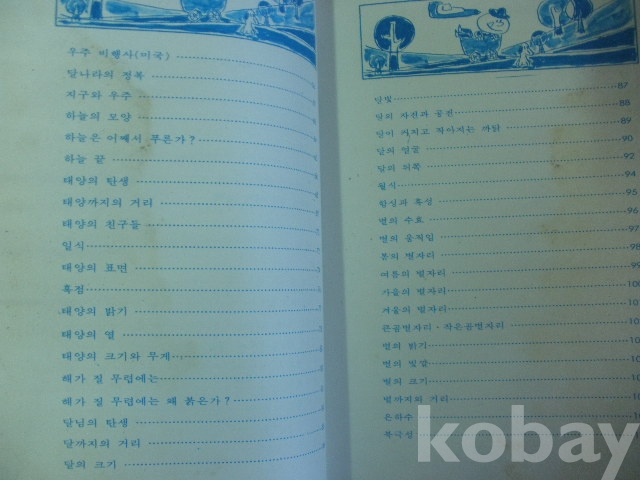 우주 비행사(미국)
달나라의 정복
지구와 우주
하늘의 모양
하늘은 어째서 푸른가?
하늘 끝
태양의 탄생
태양까지의 거리
태양의 친구들
일식
태양의 표면
흑점
태양의 밝기
태양의 열
태양의 크기와 무게
해가 질 무렵에는
해가 질 무렵에는 왜 붉은가?
달님의 탄생
달까지의 거리
달의 크기
달빛 87
달의 자전과 공전 88
달이 커지고 작아지는 까닭 89
달의 얼굴 90
달의 정복 92
월식 94
항성과 혹성 95
별의 수효 96
별의 움직임 97
봄의 별자리 98
여름의 별자리 99
가을의 별자리 100
겨울의 별자리 10
큰곰별자리·작은곰별자리 10
별의 밝기 10
별의 빛깔 10
별의 크기 10
별까지의 거리 10
은하수
북극성
kobay